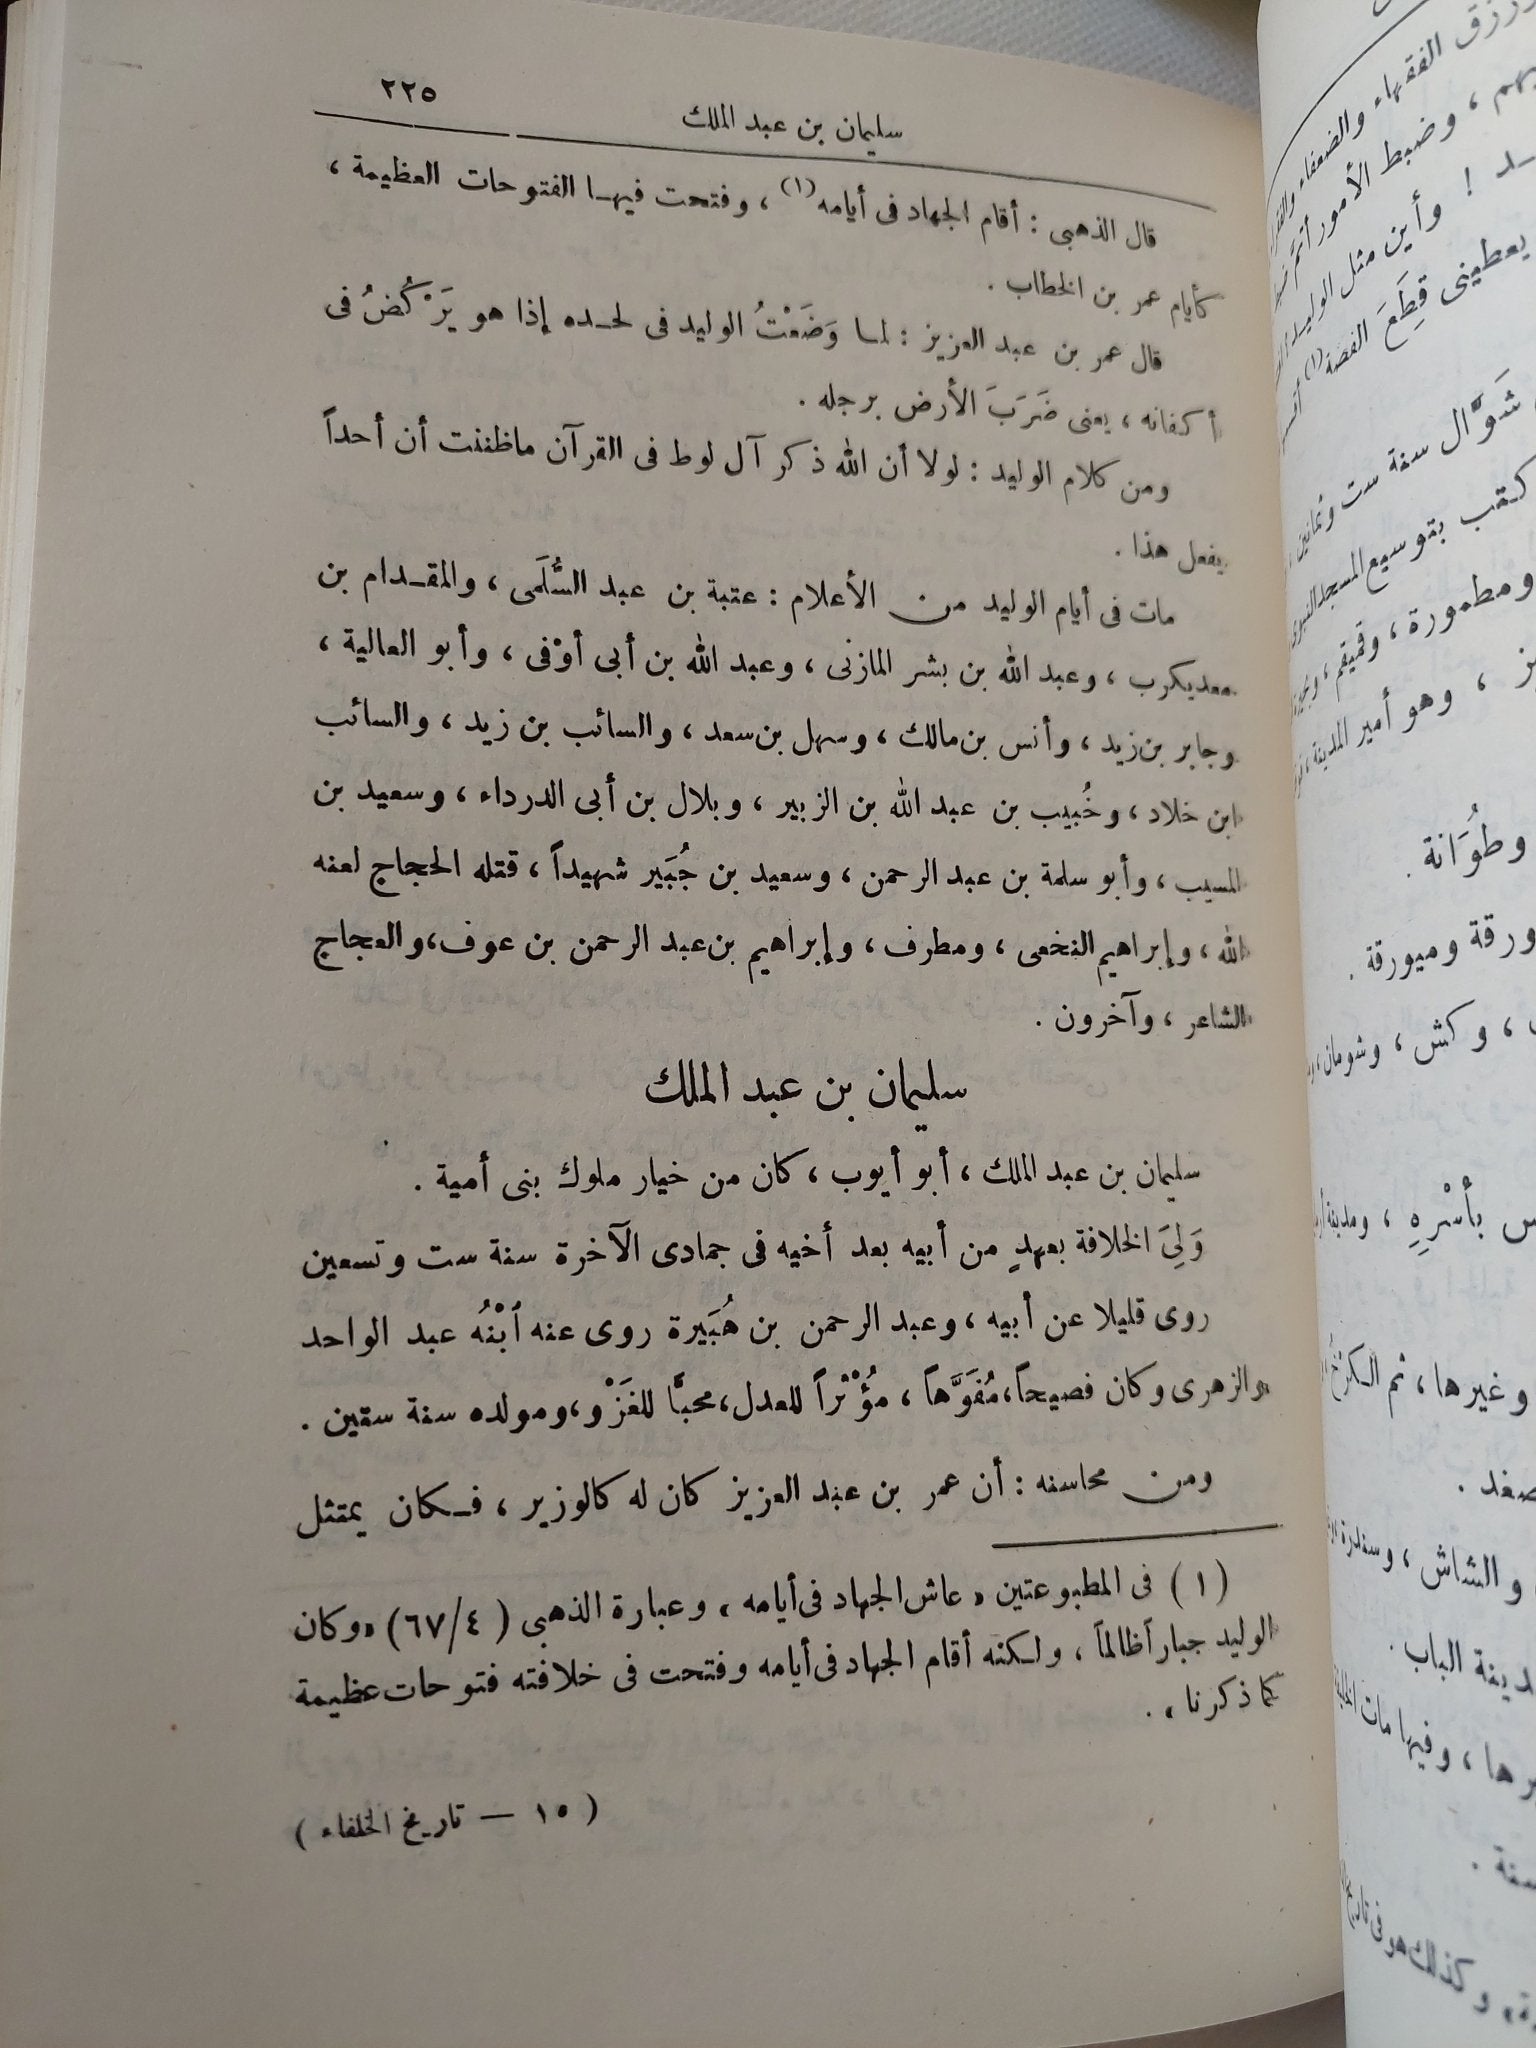 سليمان بن عبد الملك
٢٢٥
قال الذهبى : أقام الجهاد فى أيامه (١) ، وفتحت فيهـا الفتوحات العظيمة ،
كأيام عمر بن الخطاب .
قال عمر بن عبد العزيز : لمـا وَضَعْتُ الوليد فى لحـده إذا هو يَرْكُضُ فى
أكفانه ، يعنى ضَرَبَ الأرض برجله .
ومن كلام الوليد : لولا أن الله ذكر آل لوط فى القرآن ماظننت أن أحداً
يفعل هذا .
مات فى أيام الوليد من الأعلام : عتبة بن عبد السُّلَمى ، والمقـدام بن
معديكرب ، وعبد الله بن بشر المازنى ، وعبد الله بن أبى أوْفى ، وأبو العالية ،
وجابر بن زيد ، وأنس بن مالك ، وسهل بن سعد ، والسائب بن زيد ، والسائب
ابن خلاد ، وخُبيب بن عبد الله بن الزبير ، وبلال بن أبى الدرداء ، وسعيد بن
المسيب ، وأبو سلمة بن عبد الرحمن ، وسعيد بن جُبَير شهيداً ، قتله الحجاج لعنه
الله ، وإبراهيم النخعى ، ومطرف ، وإبراهيم بن عبد الرحمن بن عوف، والعجاج
الشاعر ، وآخرون .
سليمان بن عبد الملك
سليمان بن عبد الملك ، أبو أيوب ، كان من خيار ملوك بنى أمية .
وَلِىَ الخلافة بعهدٍ من أبيه بعد أخيه فى جمادى الآخرة سنة ست وتسعين
روى قليلا عن أبيه ، وعبد الرحمن بن هُبَيرة روى عنه ٱبْنُه عبد الواحد
والزهرى وكان فصيحاً، مُفَوَّهاً ، مؤْثراً للعدل، محبًّا للغَزْو، ومولده سنة ستين .
ومن محاسنه : أن عمر بن عبد العزيز كان له كالوزير ، فـكان يمتثل
(١) فى المطبوعتين « عاش الجهاد فى أيامه » وعبارة الذهبى ( ٤/٦٧) « وكان
الوليد جباراً ظالماً ، ولـكنه أقام الجهاد فى أيامه وفتحت فى خلافته فتوحات عظيمة
كما ذكرنا » .
( ١٥ — تاريخ الخلفاء )
الفقهاء والضعفاء
، وضبط الأمور أتم
! وأين مثل الوليد
يعطينى قِطَعَ الفضة (١)
شَوَّال سنة ست وثمانين
كتب بتوسيع المسجد النبوى
ومطمورة ، وقميقم ،
، وهو أمير المدينة
وطُوَانة .
وميورقة .
، وكش ، وشومان
بأسْرِهِ ، ومدينة
وغيرها ، ثم الكرخ
صغد .
والشاش ، وسندرة
الباب .
، وفيها مات
سنة .
وكذلك هو فى